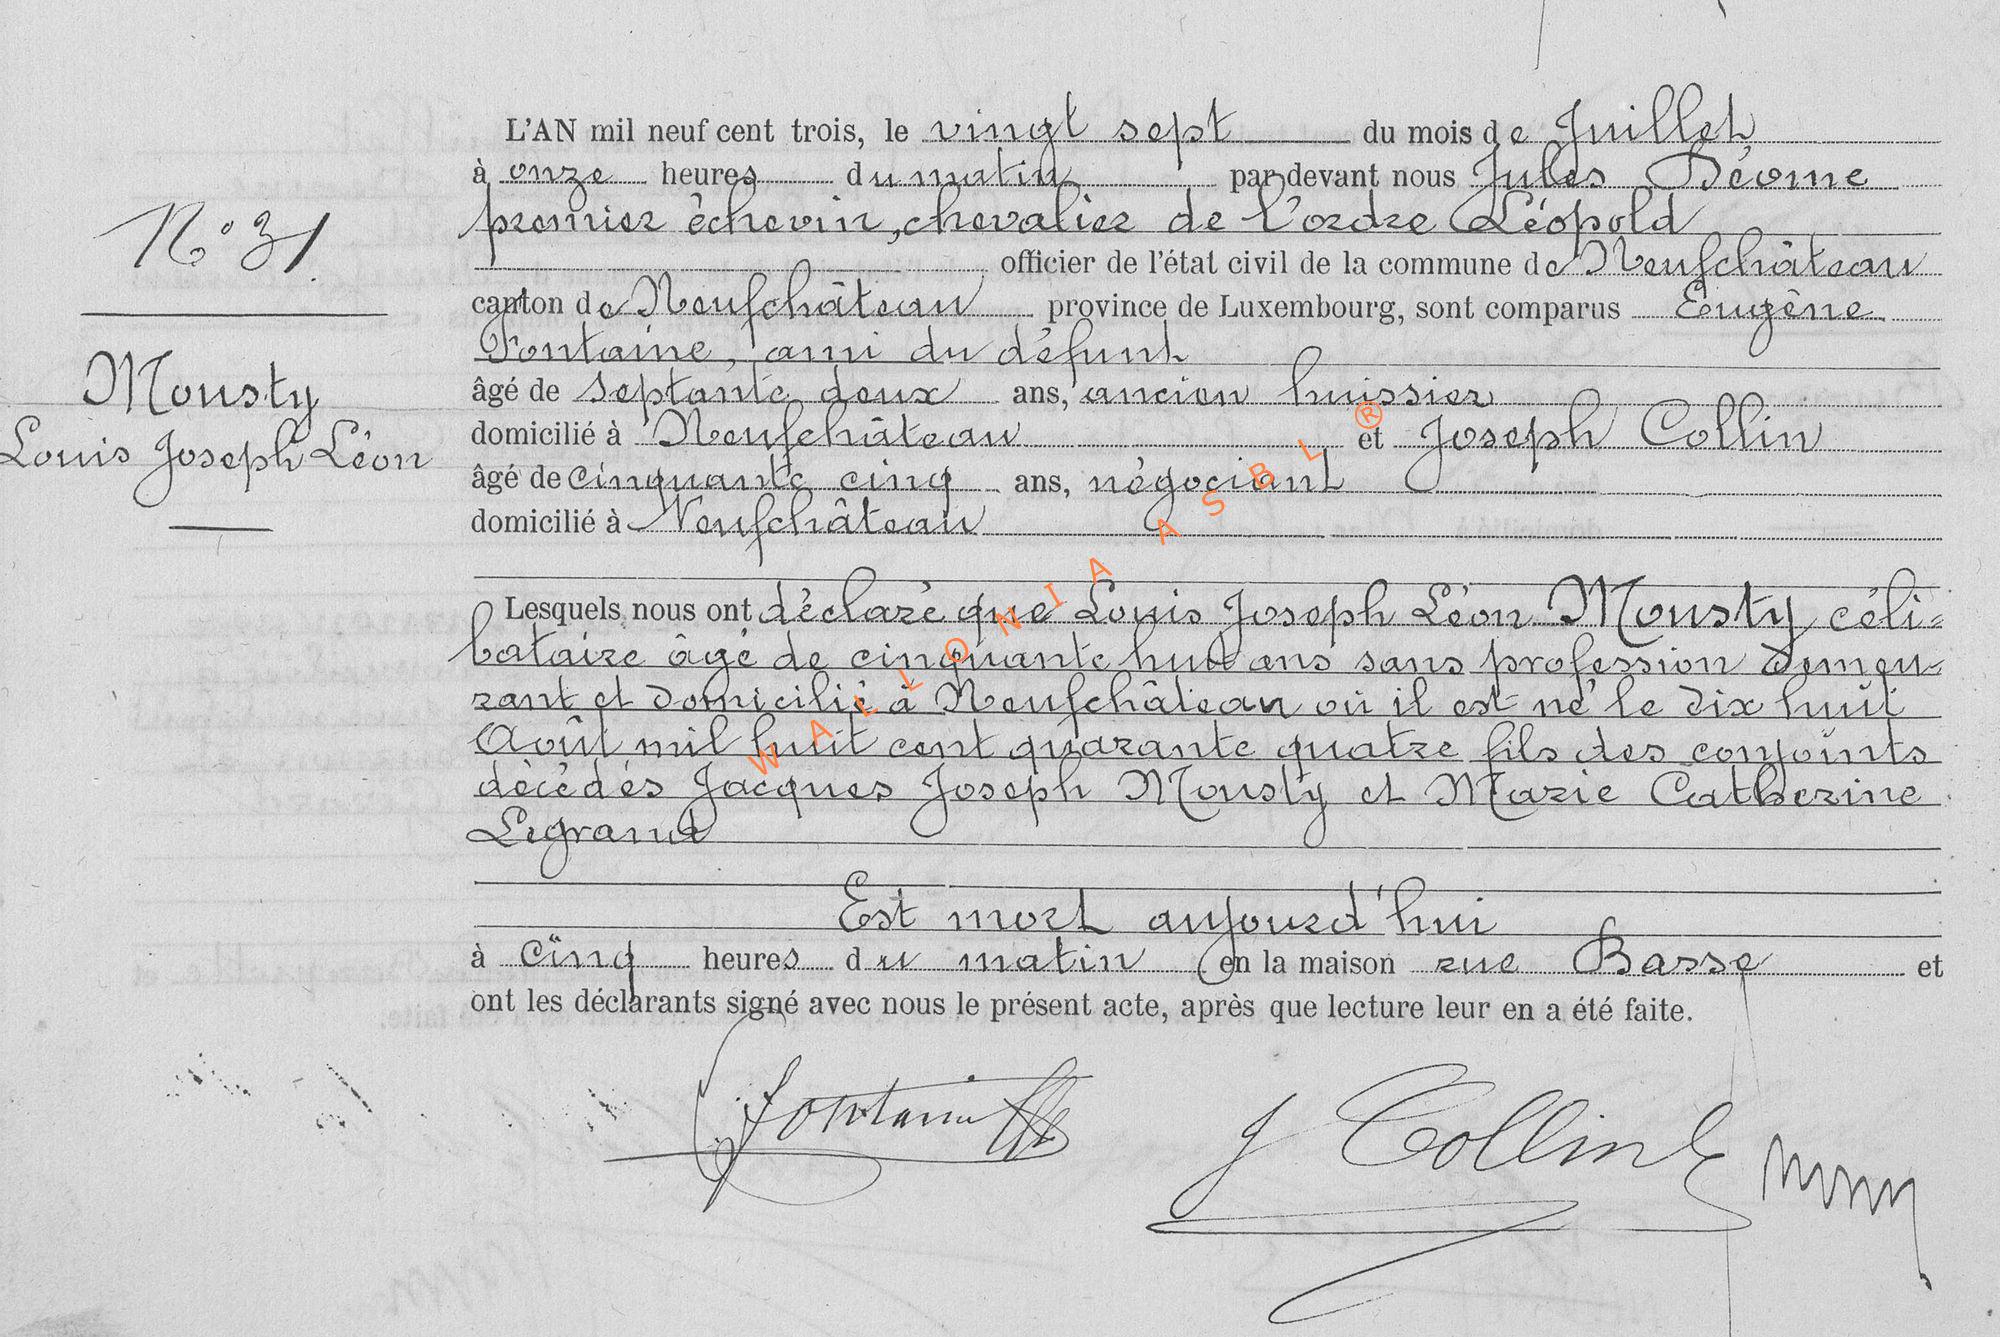 L'AN mil neuf cent trois, le vingt sept du mois de Juillet
à onze heures du matin par devant nous Jules Déome
premier échevin, chevalier de l'ordre Léopold
officier de l'état civil de la commune de Neufchâteau
N° 31
canton de Neufchâteau province de Luxembourg, sont comparus Eugène
Fontaine, ami du défunt
Mousty
Louis Joseph Léon
âgé de septante deux ans, ancien huissier
domicilié à Neufchâteau et Joseph Collin
âgé de cinquante cinq ans, négociant
domicilié à Neufchâteau
Lesquels nous ont déclaré que Louis Joseph Léon Mousty céli-
bataire âgé de cinquante huit ans sans profession demeu-
rant et domicilié à Neufchâteau où il est né le dix huit
Août mil huit cent quarante quatre fils des conjoints
décédés Jacques Joseph Mousty et Marie Catherine
Legrand
Est mort aujourd'hui
à cinq heures du matin en la maison rue Basse et
ont les déclarants signé avec nous le présent acte, après que lecture leur en a été faite.
Fontaine
J Collin
WALLONIA ASBL ®